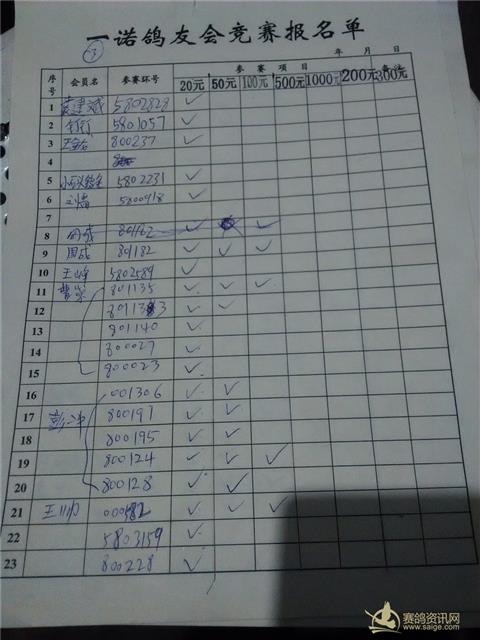 一诺鸽友会竞赛报名单
3
年 月 日
序号 会员名 参赛环号 参 赛 项 目 备注
20元 50元 100元 500元 1000元 200元 300元
1 5802828 ✓
2 5801057 ✓
3 800237 ✓
4
5 5802231 ✓
6 5800918 ✓
7
8 周成 801162 ✓ ✓
9 周成 801182 ✓ ✓ ✓
10 王峰 5802589 ✓
11 曹荣 801135 ✓ ✓ ✓
12 ✓ ✓
13 801140 ✓
14 800027 ✓
15 800023 ✓
16 001306 ✓ ✓
17 彭冲 800197 ✓ ✓
18 800195 ✓ ✓
19 800124 ✓ ✓ ✓
20 800128 ✓ ✓
21 王帅 ✓ ✓ ✓
22 5803159 ✓
23 800228 ✓
赛鸽资讯网
www.saige.com